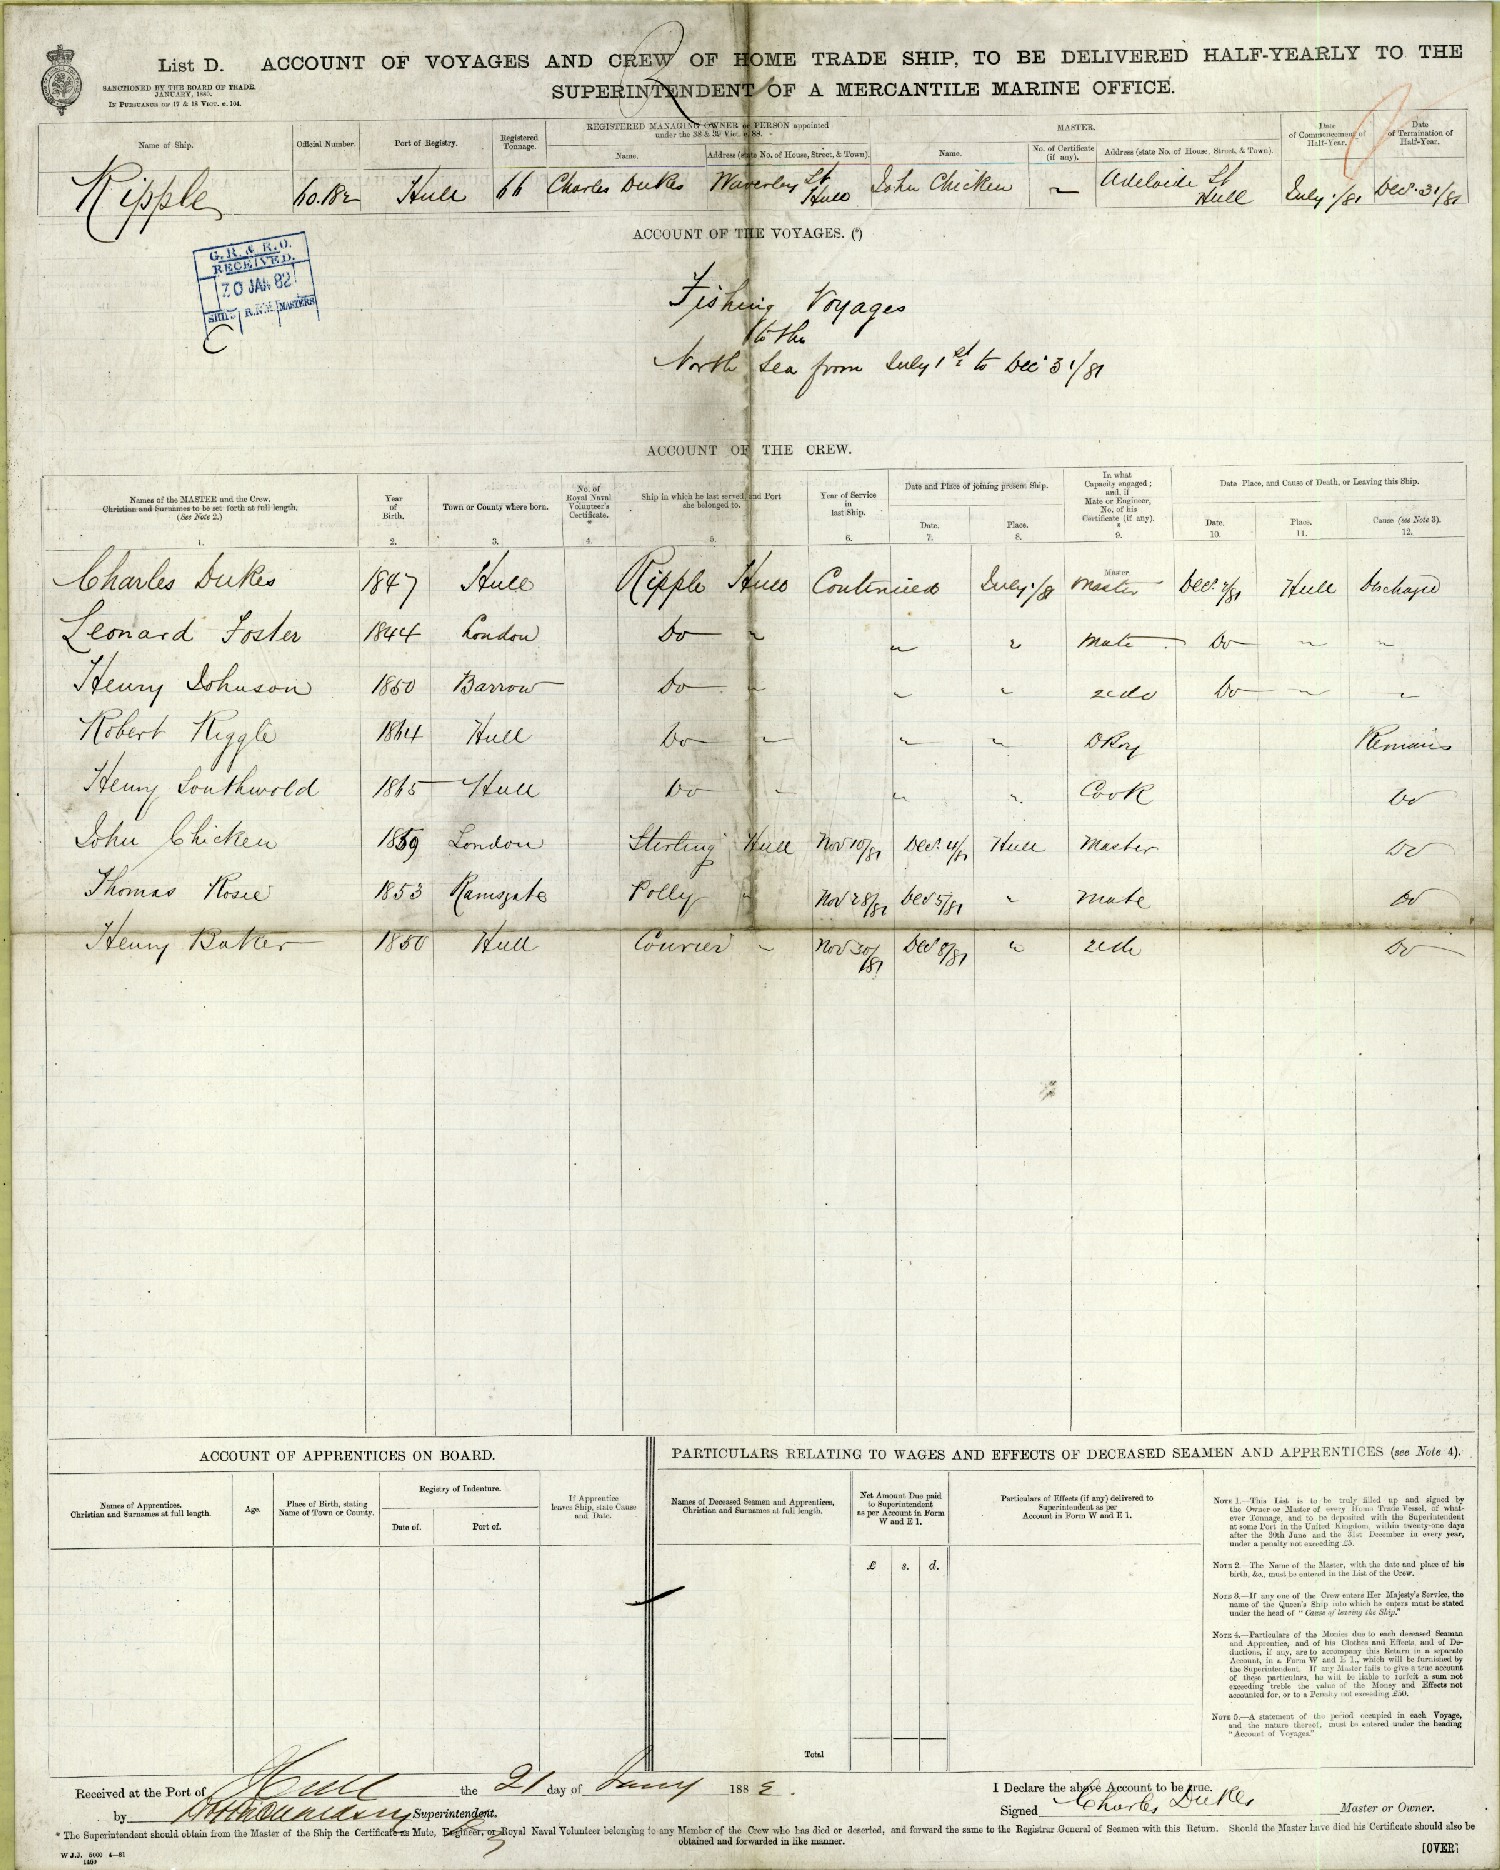 List D. ACCOUNT OF VOYAGES AND CREW OF HOME TRADE SHIP, TO BE DELIVERED HALF-YEARLY TO THE
SUPERINTENDENT OF A MERCANTILE MARINE OFFICE.
SANCTIONED BY THE BOARD OF TRADE
JANUARY, 1880.
IN PURSUANCE OF 17 & 18 VICT. c. 104.
Name of Ship. Official Number. Port of Registry. Registered Tonnage. REGISTERED MANAGING OWNER or PERSON appointed under the 38 & 39 Vict. c. 88. MASTER. Date of Commencement of Half-Year. Date of Termination of Half-Year.
Name. Address (state No. of House, Street, & Town). Name. No. of Certificate (if any). Address (state No. of House, Street, & Town).
Ripple 60.182 Hull 66 Charles Dukes Waverley St Hull John Chicken Adelaide St Hull July 1/81 Dec. 31/81
ACCOUNT OF THE VOYAGES. (*)
G.R. & R.O.
RECEIVED.
20 JAN 82
SHIPS R.N.R. MASTERS
C
Fishing Voyages
to the
North Sea from July 1st to Dec 31/81
ACCOUNT OF THE CREW.
Names of the MASTER and the Crew. Christian and Surnames to be set forth at full length. (See Note 2.) Year of Birth. Town or County where born. No. of Royal Naval Volunteer's Certificate. * Ship in which he last served, and Port she belonged to. Year of Service in last Ship. Date and Place of joining present Ship. In what Capacity engaged; and, if Mate or Engineer, No. of his Certificate (if any). * Date Place, and Cause of Death, or Leaving this Ship.
Date. Place. Date. Place. Cause (see Note 3).
1. 2. 3. 4. 5. 6. 7. 8. 9. 10. 11. 12.
Master
Charles Dukes 1847 Hull Ripple Hull Continued July 1/81 Master Dec. 2/81 Hull Discharged
Leonard Foster 1844 London Do " " " Mate Do " "
Henry Johnson 1850 Barrow Do " " " 2do Do " "
Robert Riggle 1864 Hull Do " " " DBoy Remains
Henry Southwold 1865 Hull Do " " " Cook Do
John Chicken 1859 London Sterling Hull Nov 10/81 Dec. 4/81 Hull Master Do
Thomas Rosie 1853 Ramsgate Polly " Nov 28/81 Dec 5/81 " Mate Do
Henry Baker 1850 Hull Courier " Nov 30/81 Dec 8/81 " 2do Do
ACCOUNT OF APPRENTICES ON BOARD.
Names of Apprentices. Christian and Surnames at full length. Age. Place of Birth, stating Name of Town or County. Registry of Indenture. If Apprentice leaves Ship, state Cause and Date.
Date of. Port of.
PARTICULARS RELATING TO WAGES AND EFFECTS OF DECEASED SEAMEN AND APPRENTICES (see Note 4).
Names of Deceased Seamen and Apprentices, Christian and Surnames at full length. Net Amount Due paid to Superintendent as per Account in Form W and E 1. Particulars of Effects (if any) delivered to Superintendent as per Account in Form W and E 1.
£ s. d.
Total
NOTE 1.—This List is to be truly filled up and signed by
the Owner or Master of every Home Trade Vessel, of what-
ever Tonnage, and to be deposited with the Superintendent
at some Port in the United Kingdom, within twenty-one days
after the 30th June and the 31st December in every year,
under a penalty not exceeding £5.
NOTE 2.—The Name of the Master, with the date and place of his
birth, &c., must be entered in the List of the Crew.
NOTE 3.—If any one of the Crew enters Her Majesty's Service, the
name of the Queen's Ship into which he enters must be stated
under the head of "Cause of leaving the Ship."
NOTE 4.—Particulars of the Monies due to each deceased Seaman
and Apprentice, and of his Clothes and Effects, and of De-
ductions, if any, are to accompany this Return in a separate
Account, in a Form W and E 1., which will be furnished by
the Superintendent. If any Master fails to give a true account
of these particulars, he will be liable to forfeit a sum not
exceeding treble the value of the Money and Effects not
accounted for, or to a Penalty not exceeding £50.
NOTE 5.—A statement of the period occupied in each Voyage,
and the nature thereof, must be entered under the heading
"Account of Voyages."
Received at the Port of Hull the 21 day of Jany 1882.
by Superintendent.
I Declare the above Account to be true.
Signed Charles Dukes Master or Owner.
* The Superintendent should obtain from the Master of the Ship the Certificate as Mate, Engineer, or Royal Naval Volunteer belonging to any Member of the Crew who has died or deserted, and forward the same to the Registrar General of Seamen with this Return. Should the Master have died his Certificate should also be
obtained and forwarded in like manner.
W J.J. 5000 4—81
1469
[OVER]